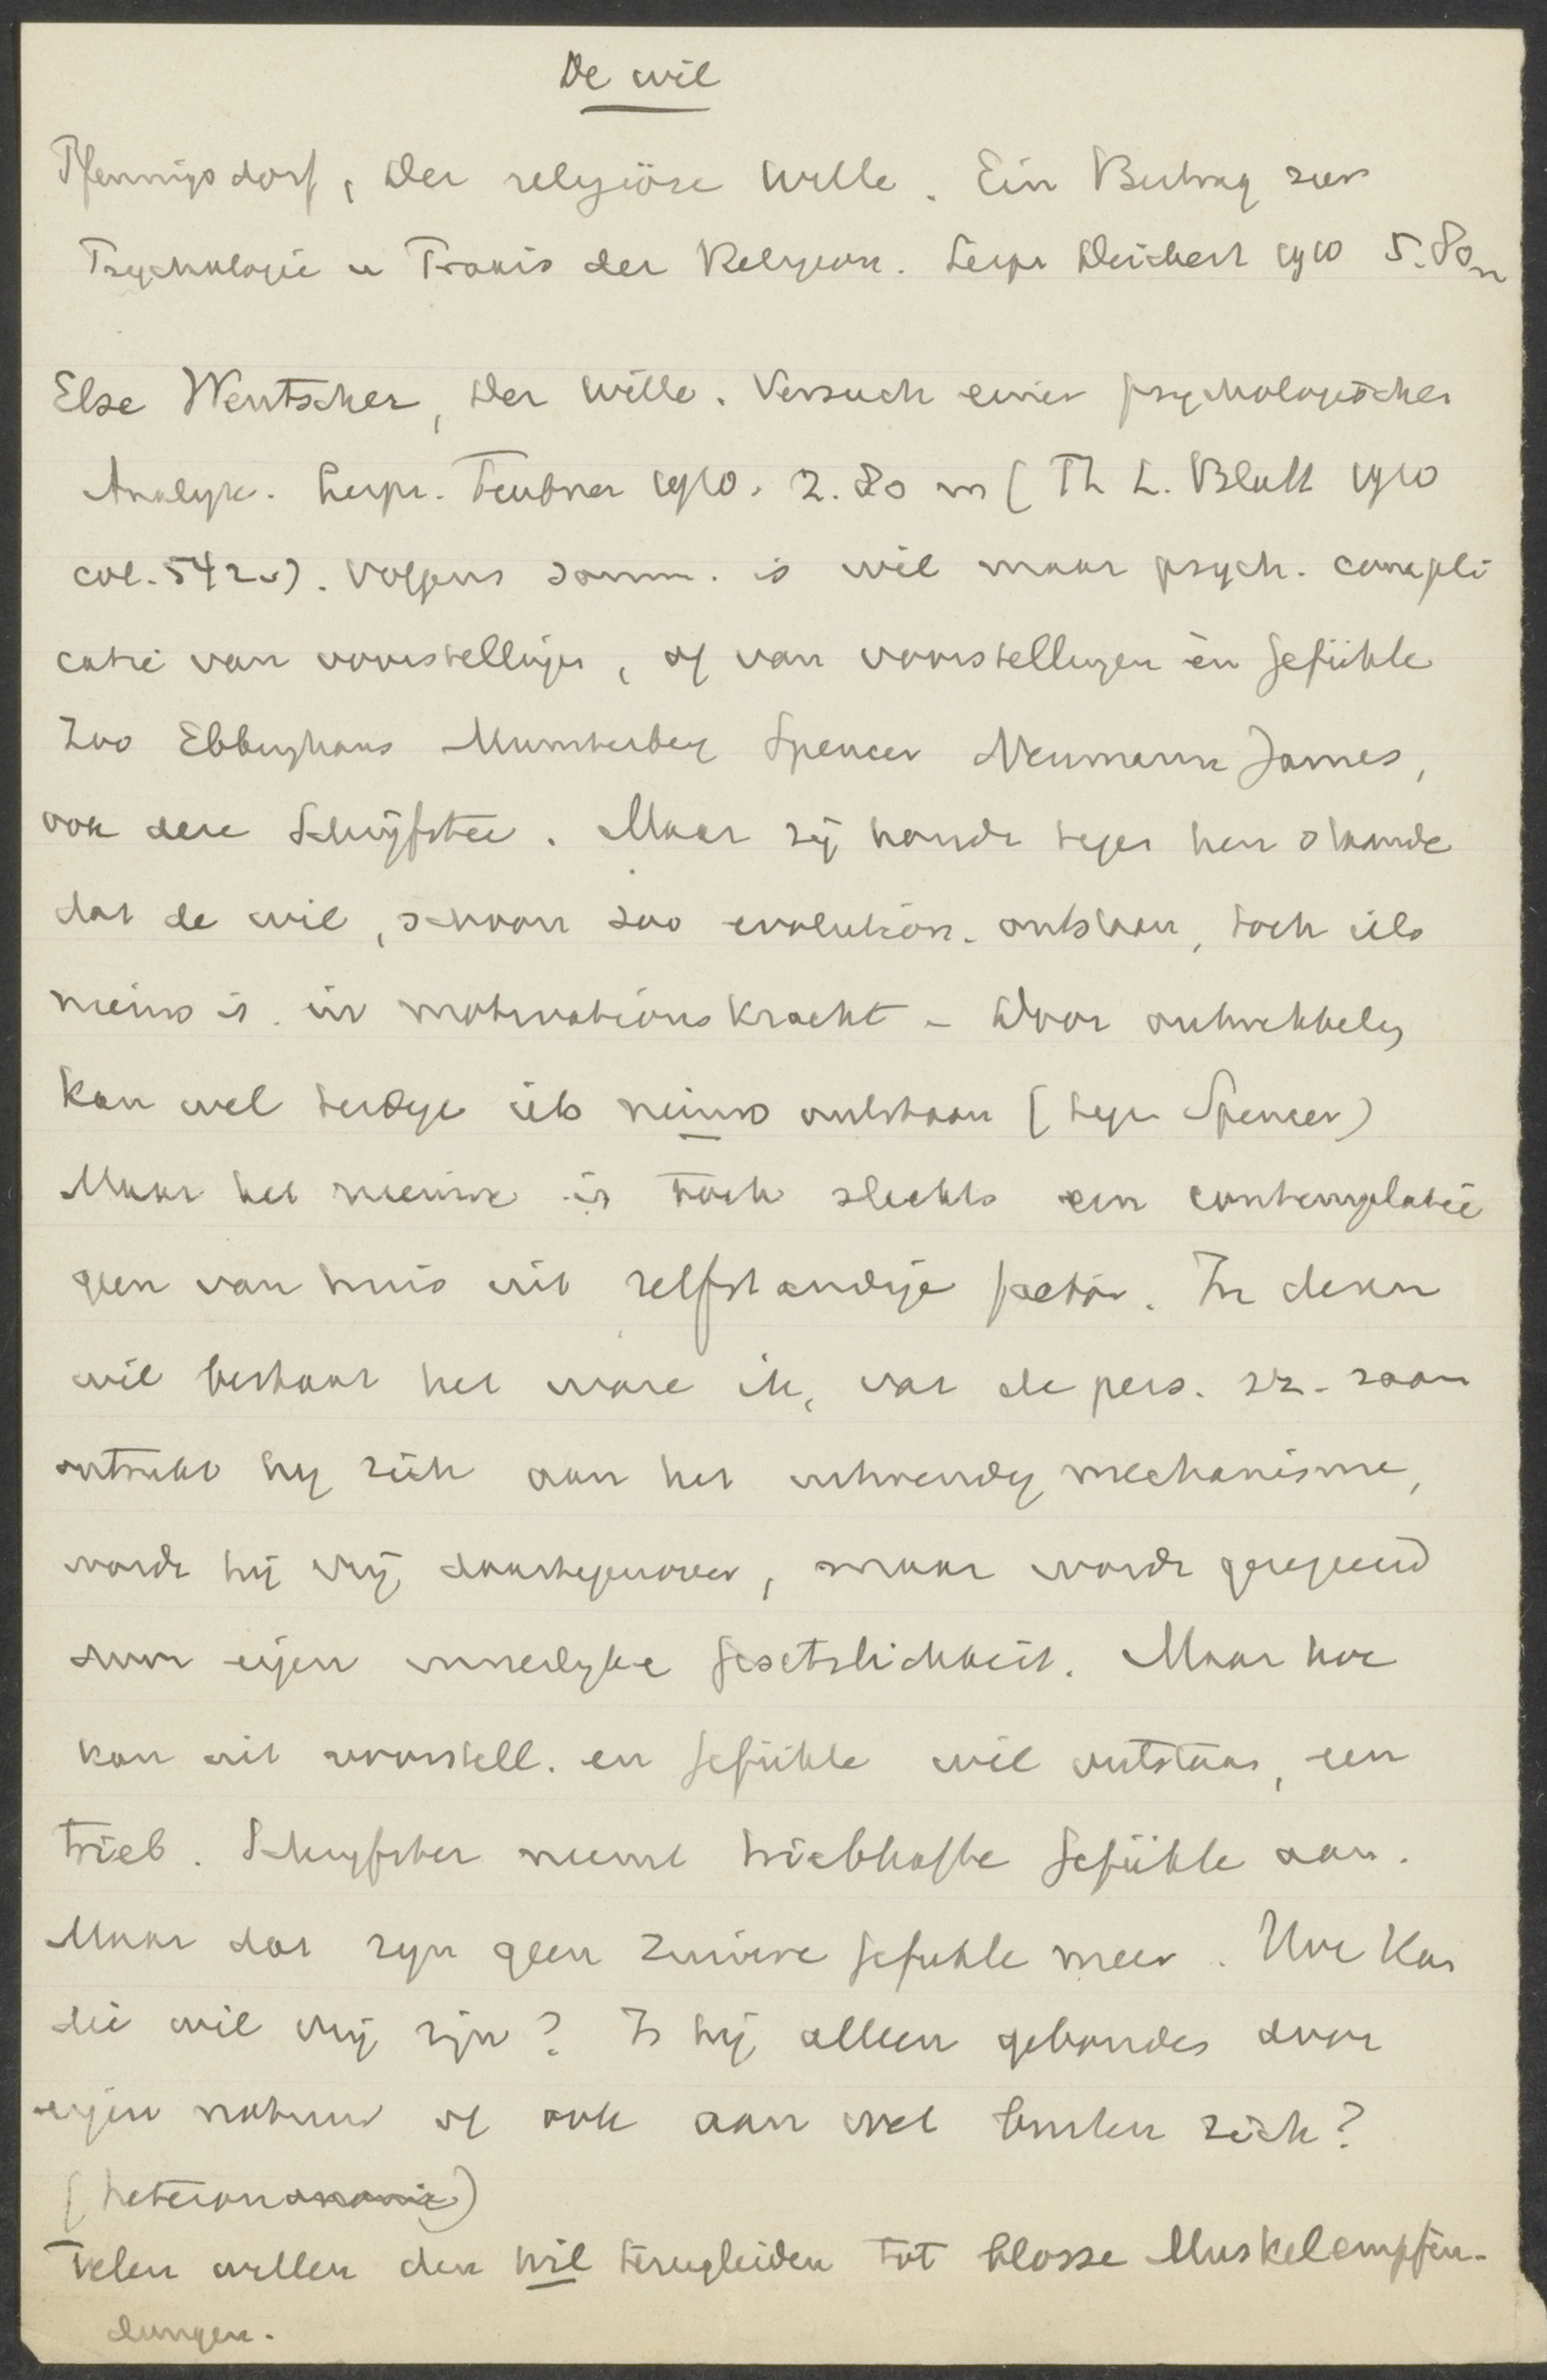 De wil
Pfennigsdorf, Der religiöse Wille. Ein Beitrag zur
Psychologie u Praxis der Religion. Leipz Deichert 1910 5.80 m
Else Wentscher, Der Wille. Versuch einer psychologischen
Analyse. Leipz. Teubner 1910. 2.80 m (Th L. Blatt 1910
col. 542 v). Volgens somm. is wil maar psych. compli
catie van voorstellingen, of van voorstellingen èn Gefühle
Zoo Ebbinghaus Munsterberg Spencer Neumann James,
ook deze Schrijfster. Maar zij houdt tegen hen staande
dat de wil, schoon zoo evolution. ontstaan, toch iets
nieuws is in motivationskracht - Door ontwikkeling
kan wel terdege iets nieuws ontstaan (tegen Spencer)
Maar het nieuwe is toch slechts een contemplatie
geen van huis uit zelfstandige factor. In dezen
wil bestaat het ware ik, van de pers. zz. zoo
ontrukt hij zich aan het uitwendig mechanisme,
wordt hij vrij daartegenover, maar wordt geregeerd
door eigen innerlyke Gesetzlichkeit. Maar hoe
kan uit voorstell. en Gefühle wil ontstaan, een
Trieb. Schryfster neemt triebhafte Gefühle aan.
Maar dat zyn geen zuivere Gefuhle meer. Hoe kan
die wil vrij zijn? Is hij alleen gebonden door
eigen natuur of ook aan wet buiten zich?
(heteronomie)
Velen willen den wil terugleiden tot blosse Muskelempfin-
dungen.